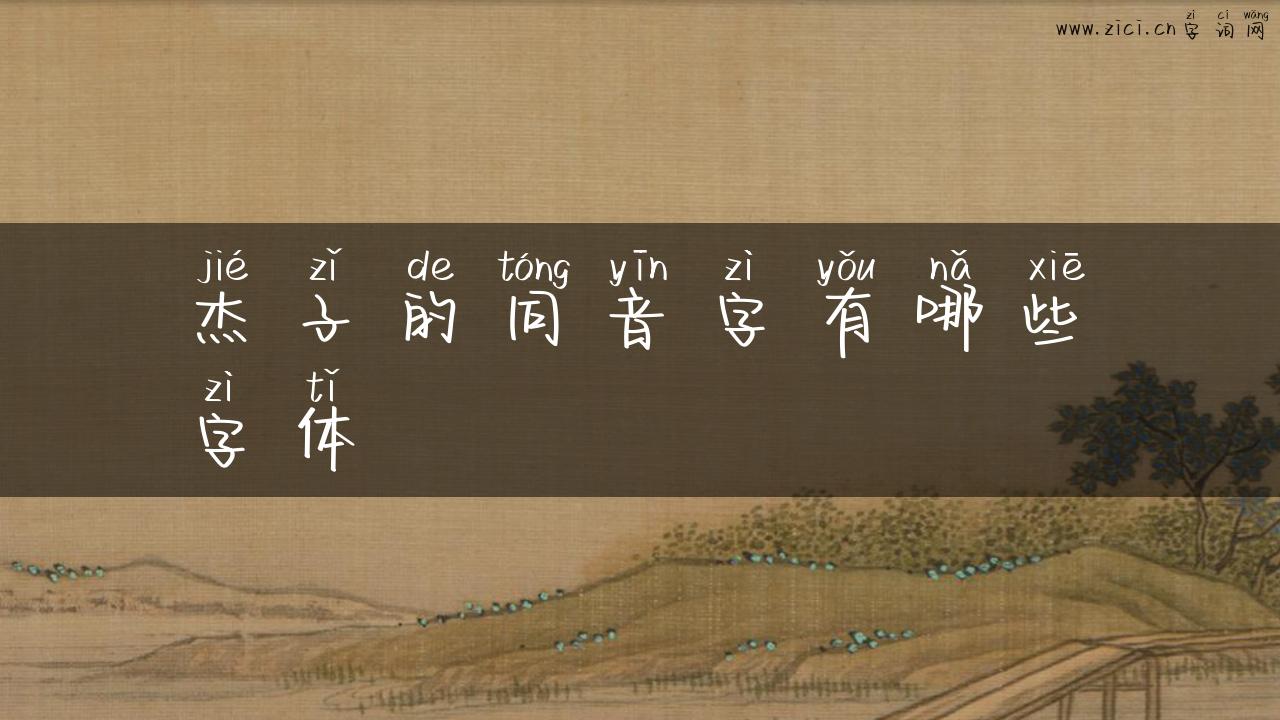 zì cí wǎng
www.zici.cn字词网
jié zǐ de tóng yīn zì yǒu nǎ xiē
杰子的同音字有哪些
zì tǐ
字体